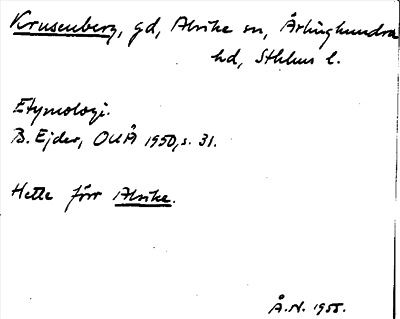 Krusenberg, gd, Alsike sn, Ärlinghundra
hd, Sthlms l.
Etymologi.
B. Ejder, OUÅ 1950, s. 31.
Hette förr Alsike.
Å.N. 1955.